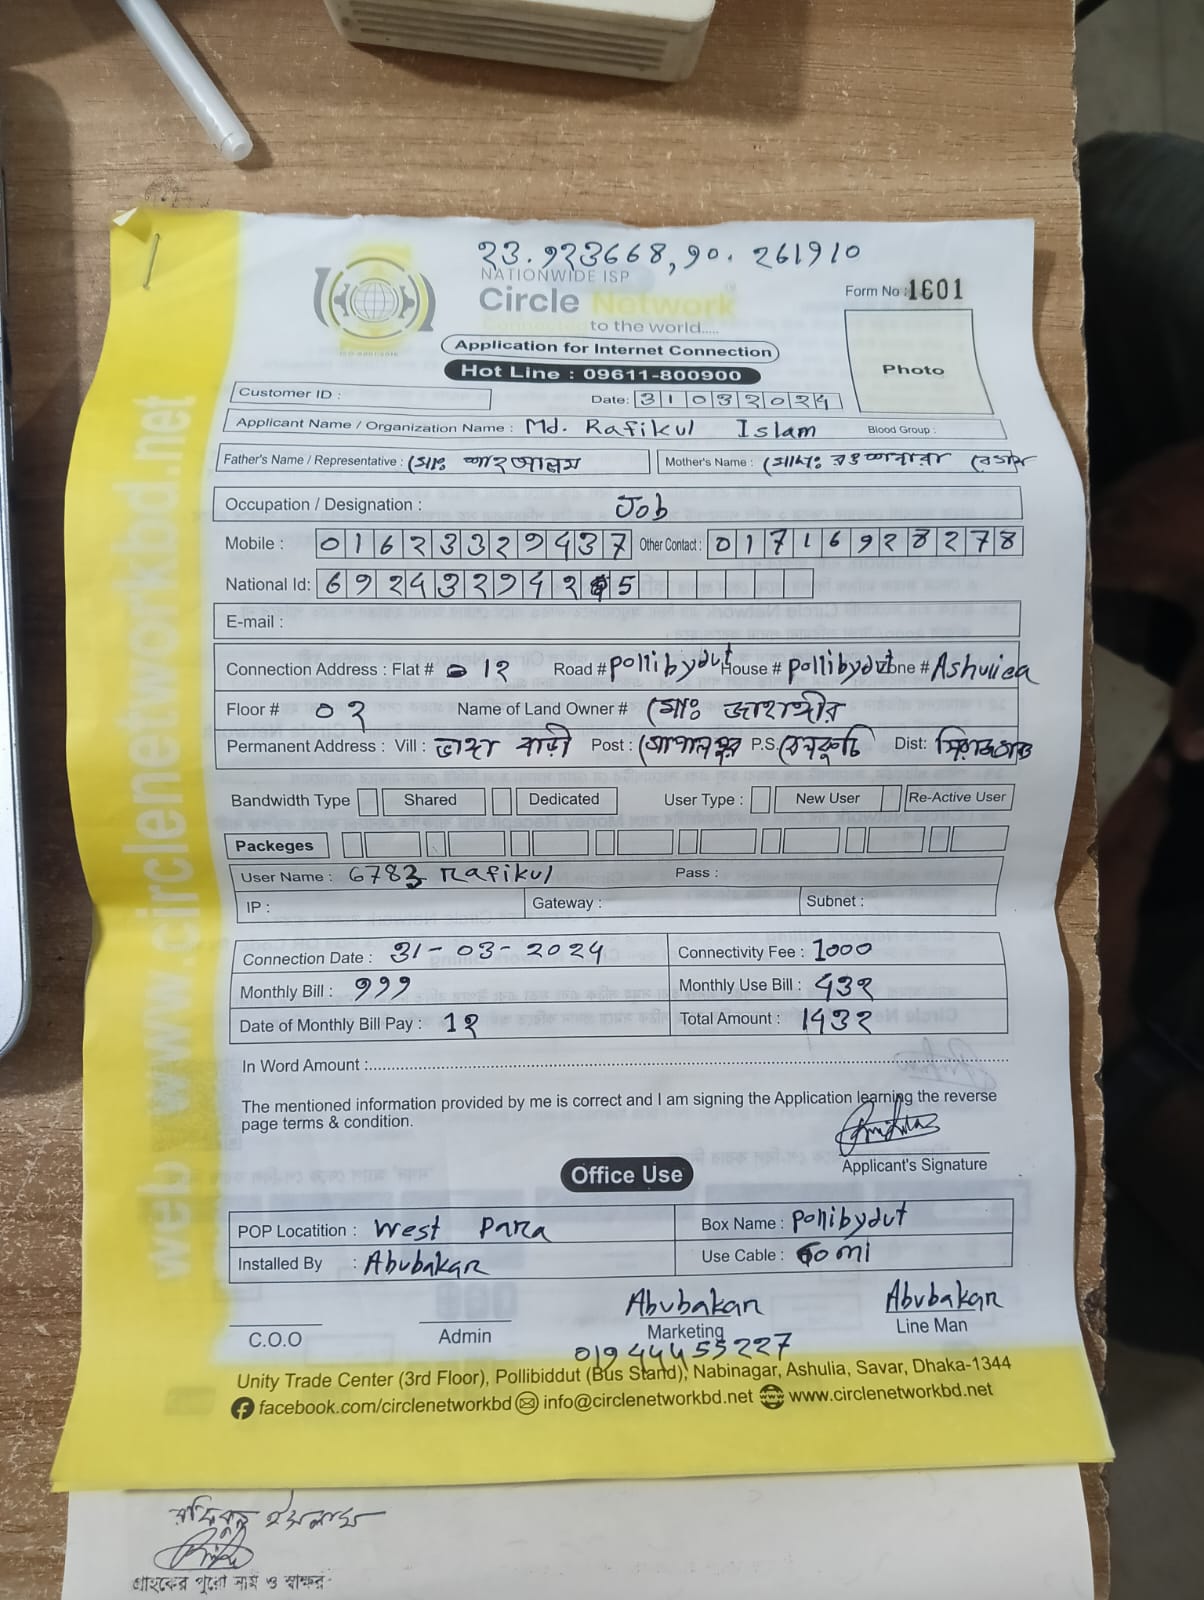 23.923668, 90.261910
NATIONWIDE ISP
Circle Network
Connected to the world.....
Form No : 1601
Application for Internet Connection
Hot Line : 09611-800900
Photo
Customer ID :
Date: 31032024
Applicant Name / Organization Name : Md. Rafikul Islam Blood Group :
Father's Name / Representative : মোঃ শাহআলম Mother's Name : মোছাঃ
Occupation / Designation : Job
Mobile : 01623329437 Other Contact : 01716928278
National Id: 6924329425
E-mail :
Connection Address : Flat # 12 Road # pollibydut House # pollibydut Zone # Ashuliea
Floor # 02 Name of Land Owner # মোঃ জাহাঙ্গীর
Permanent Address : Vill : ভাঙ্গা বাড়ী Post : গোপালপুর P.S. বেলকুচি Dist: সিরাজগঞ্জ
Bandwidth Type Shared Dedicated User Type : New User Re-Active User
Packeges
User Name : 6783 Rafikul Pass :
IP : Gateway : Subnet :
Connection Date : 31-03-2024 Connectivity Fee : 1000
Monthly Bill : 999 Monthly Use Bill : 432
Date of Monthly Bill Pay : 12 Total Amount : 1432
In Word Amount :
The mentioned information provided by me is correct and I am signing the Application learning the reverse
page terms & condition.
Applicant's Signature
Office Use
POP Locatition : West Para Box Name : Pollibydut
Installed By : Abubakar Use Cable : 60 mi
Abubakar Abubakar
C.O.O Admin Marketing Line Man
01944455227
Unity Trade Center (3rd Floor), Pollibiddut (Bus Stand), Nabinagar, Ashulia, Savar, Dhaka-1344
facebook.com/circlenetworkbd info@circlenetworkbd.net www.circlenetworkbd.net
web www.circlenetworkbd.net
রফিকুল ইসলাম
গ্রাহকের পুরো নাম ও স্বাক্ষর